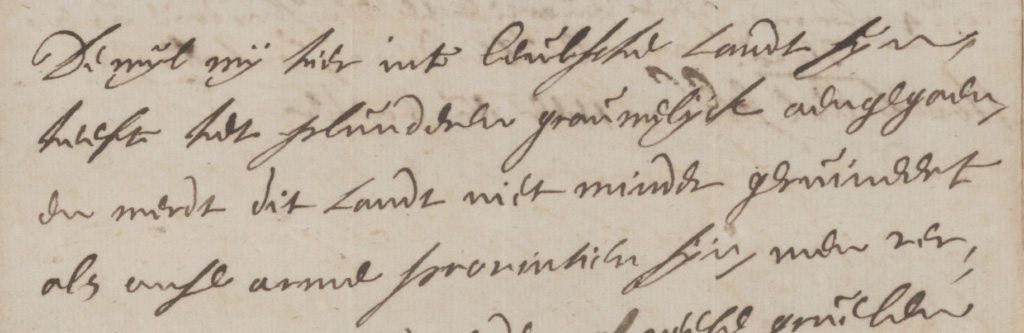 De wyl wy hier int Ceulsche Landt syn,
heeft het plunderen grouwelyck aengegaen,
en werdt dit Landt niet minder geruineert
als onse arme provintien syn, men ver,
gruelden